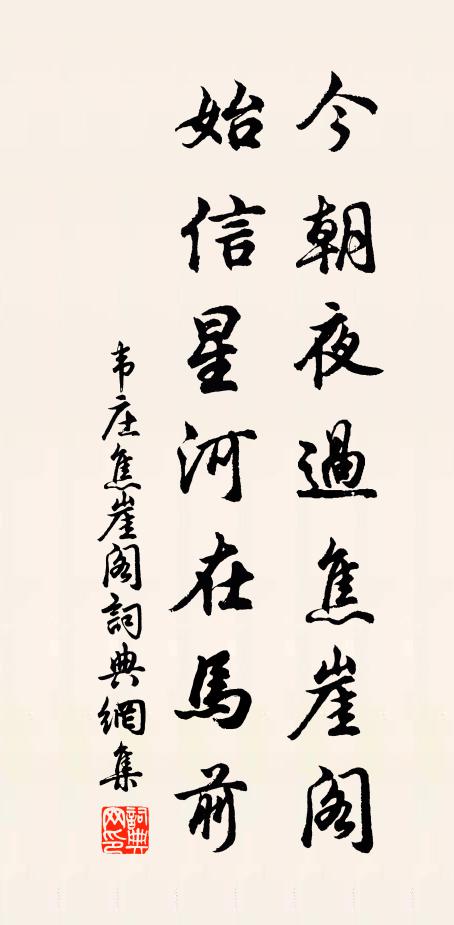 今朝夜過焦崖閣
始信星河在馬前
韦庄焦崖阁詞典網集
詞典网印